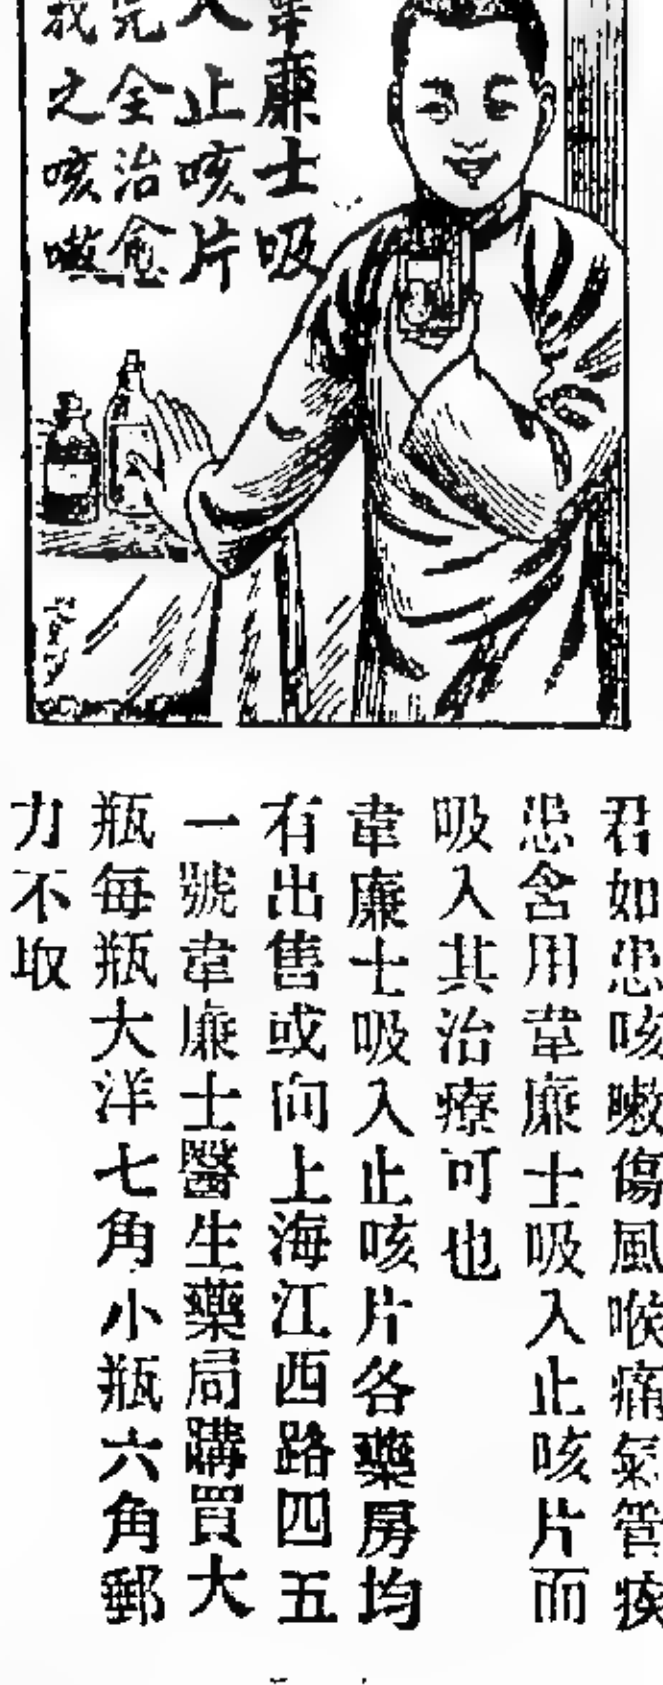 韋廉士吸
入止咳片
完全治愈
我之咳嗽
君如患咳嗽傷風喉痛氣管疾
患含用韋廉士吸入止咳片而
吸入其治療可也
韋廉士吸入止咳片各藥房均
有出售或向上海江西路四五
一號韋廉士醫生藥局購買大
瓶每瓶大洋七角小瓶六角郵
力不取